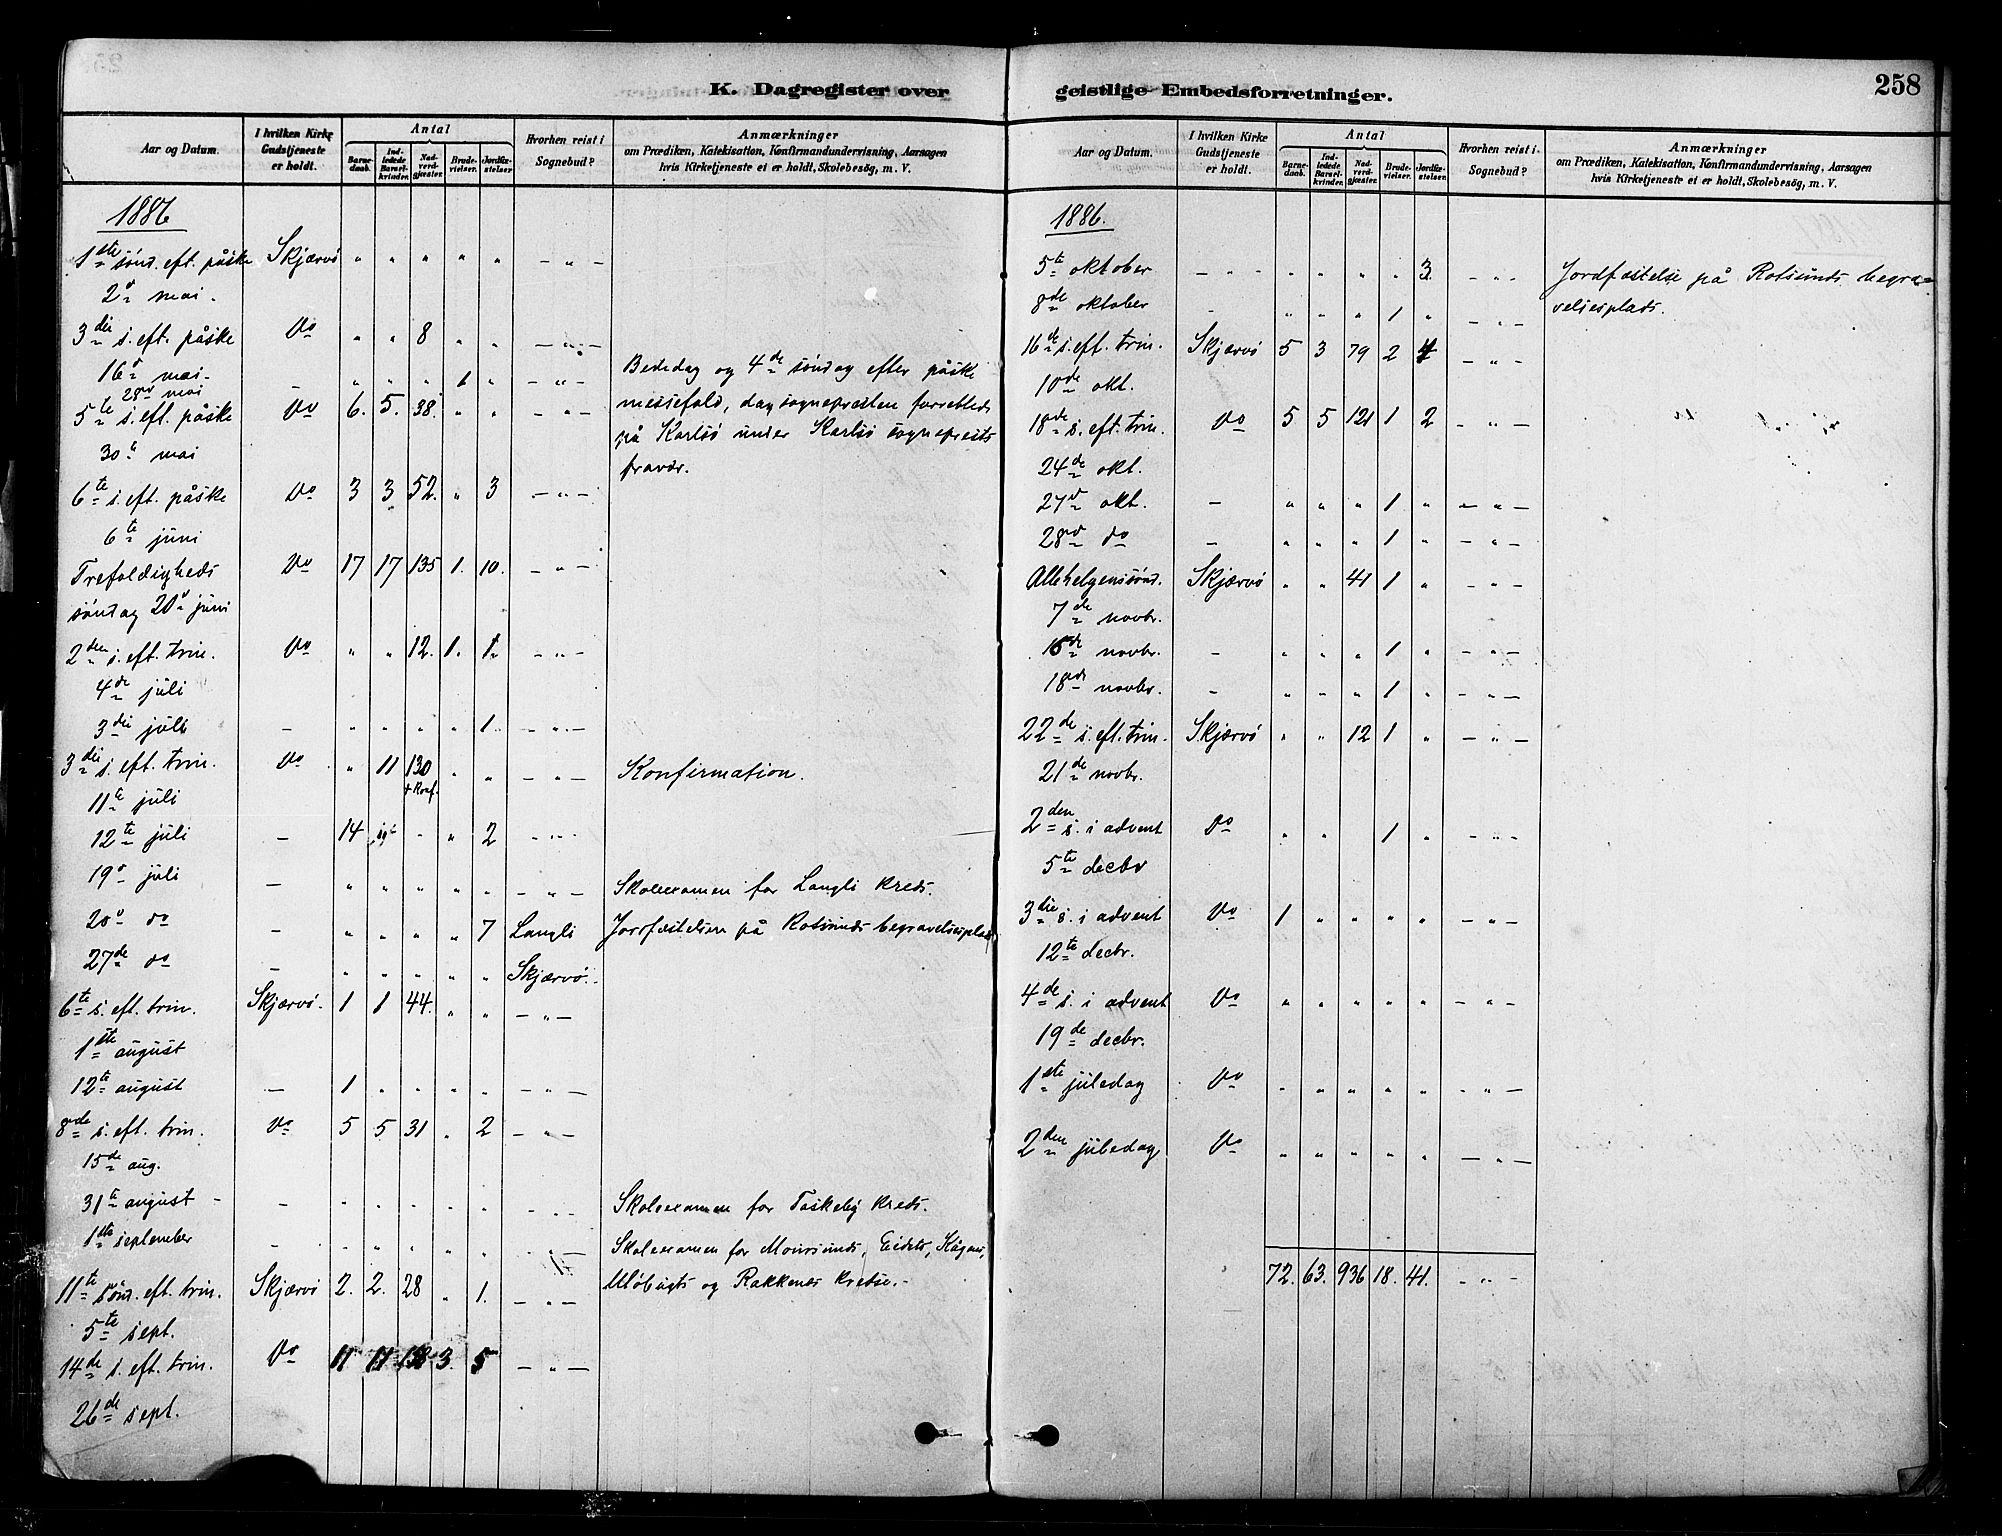 258
K. Dagregister over
geistlige Embedsforretninger.
Aar og Datum.
I hvilken Kirke
Gudstjeneste
er holdt.
Antal
Barne-
daab.
Ind-
ledede
Barsel-
kvinder.
Nad-
verd-
gjæster.
Brude-
vielser.
Jordfæ-
stelser
Hvorhen reist i
Sognebud?
Anmærkninger
om Prædiken, Katekisation, Konfirmandundervisning, Aarsagen
hvis Kirketjeneste ei er holdt, Skolebesøg, m. V.
1886
1ste sønd. eft. påske Skjærvø " " " " " – " –
2den mai.
3die s. eft. påske Do " " 8 " " – " –
16de mai.
28de mai – " " " 1 " – " –
Bededag og 4de søndag efter påske
5te s. eft. påske Do 6. 5. 38. " " – " –
messefald, da sognepresten forrettede
på Karlsø under Karlsø sogneprests
30te mai
fravær.
6te s. eft. påske Do 3 3 52. " 3 – " –
6te juni
Trefoldigheds Do 17 17 135 1. 10. – " –
søndag 20de juni
2den s. eft. trin. Do " " 12. 1. 1. – " –
4de juli
3die juli – " " " " 1. – " –
3die s. eft. trin. Do " 11 130 " " – " – Konfirmation.
+ Konf.
11te juli
12te juli – 14 – " 2 – " –
19de juli – " " " " " – " – Skoleexamen for Langli kreds.
20de do – " " " " 7 Langli Jordfæstelsen på Rotsunds begravelsesplads
27de do – " " " " " Skjærvø.
6te s. eft. trin. Skjærvø. 1 1 44. " " – " –
1ste august
12te august – 1 " " " " – " –
8de s. eft. trin. Do 5 5 31 " 2 – " –
15de aug.
31te august – – " " " " " – " – Skoleexamen for Taskeby kreds.
1ste september – " " " " " – " – Skoleexamen for Maursunds, Eidets, Kågens,
Uløbugts og Rakkenes kredse. –
11te sønd. eft. trin. Skjærvø 2. 2. 28 " 1. – " –
5te sept.
14de s. eft. trin. Do 11 11 138 3. 5 – " –
26de sept.
Aar og Datum.
I hvilken Kirke
Gudstjeneste
er holdt.
Antal
Barne-
daab.
Ind-
ledede
Barsel-
kvinder.
Nad-
verd-
gjæster.
Brude-
vielser.
Jordfæ-
stelser.
Hvorhen reist i
Sognebud?
Anmærkninger
om Prædiken, Katekisation, Konfirmandundervisning, Aarsagen
hvis Kirketjeneste et er holdt, Skolebesøg, m. V.
1886.
5te oktober – " – " " " " 3. – " – Jordfæstelse på Rotsunds begra-
8de oktober – " " " 1 " – " – velsesplads.
16de s. eft. trin. Skjærvø 5 3 79 2 4 – " –
10de okt.
18de s. eft. trin. Do 5 5 121 1 2 – " –
24de okt.
27de okt. – " " " 1 " – " –
28de do – " " " 1 " – " –
Allehelgenssønd. Skjærvø " " 41 1 " – " –
7de novbr.
15de novbr. – " " " 1 " – " –
18de novbr. – " " " 1 " – " –
22de s. eft. trin. Skjærvø " " 12 1 " – " –
21de novbr.
2den s. i advent Do " " 1 " – " –
5te decbr
3die s. i advent Do 1 " " " " – " –
12te decbr.
4de s. i advent Do " " " " " – " –
19de decbr.
1ste juledag Do " " " " " – " –
2den juledag Do " " " " " – " –
72. 63. 936 18. 41. – " –